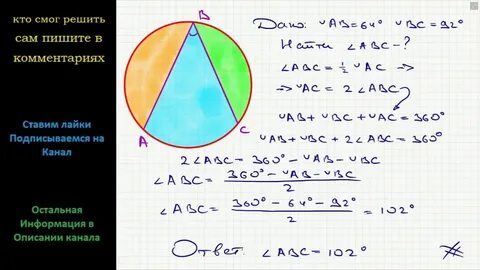 кто смог решить
сам пишите в
комментариях
Ставим лайки
Подписываемся на
Канал
Остальная
Информация в
Описании канала
B
A
C
Дано: ◡AB=64° ◡BC=92°
Найти ∠ABC-?
∠ABC = 1/2 ◡AC ⇒
⇒ ◡AC = 2 ∠ABC
◡AB + ◡BC + ◡AC = 360°
◡AB + ◡BC + 2∠ABC = 360°
2∠ABC = 360° - ◡AB - ◡BC
∠ABC = (360° - ◡AB - ◡BC)/2
∠ABC = (360° - 64° - 92°)/2 = 102°
Ответ: ∠ABC = 102°